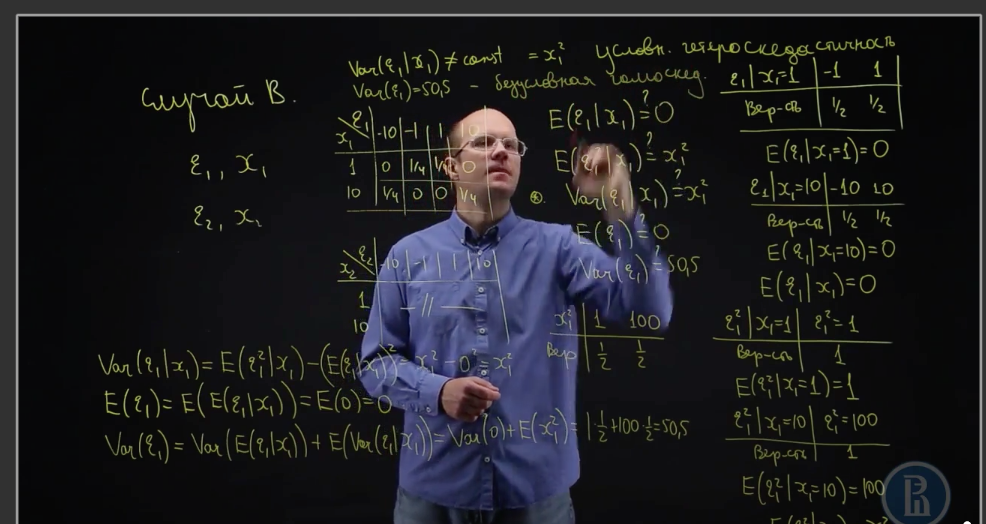 Случай В.
ε₁, x₁
ε₂, x₂
Var(ε₁|x₁) ≠ const = x₁² условн. гетероскедастичность
Var(ε₁)=50,5 – безусловная гомоскед.
x₁ \ ε₁ | -10 | -1 | 1 | 10
1 | 0 | 1/4 | 1/4 | 0
10 | 1/4 | 0 | 0 | 1/4
x₂ \ ε₂ | -10 | -1 | 1 | 10
1 — // —
10
E(ε₁|x₁) ?= 0
E(ε₁²|x₁) ?= x₁²
Var(ε₁|x₁) ?= x₁²
E(ε₁) ?= 0
Var(ε₁) ?= 50,5
x₁² | 1 100
Вер | 1/2 1/2
Var(ε₁|x₁)=E(ε₁²|x₁)–(E(ε₁|x₁))²= x₁² – 0² = x₁²
E(ε₁)=E(E(ε₁|x₁))=E(0)=0
Var(ε₁)=Var(E(ε₁|x₁))+E(Var(ε₁|x₁))=Var(0)+E(x₁²)=1·1/2+100·1/2=50,5
ε₁|x₁=1 | -1 1
Вер-сть | 1/2 1/2
E(ε₁|x₁=1)=0
ε₁|x₁=10 | -10 10
Вер-сть | 1/2 1/2
E(ε₁|x₁=10)=0
E(ε₁|x₁)=0
ε₁²|x₁=1 | ε₁²=1
Вер-сть | 1
E(ε₁²|x₁=1)=1
ε₁²|x₁=10 | ε₁²=100
Вер-сть | 1
E(ε₁²|x₁=10)=100